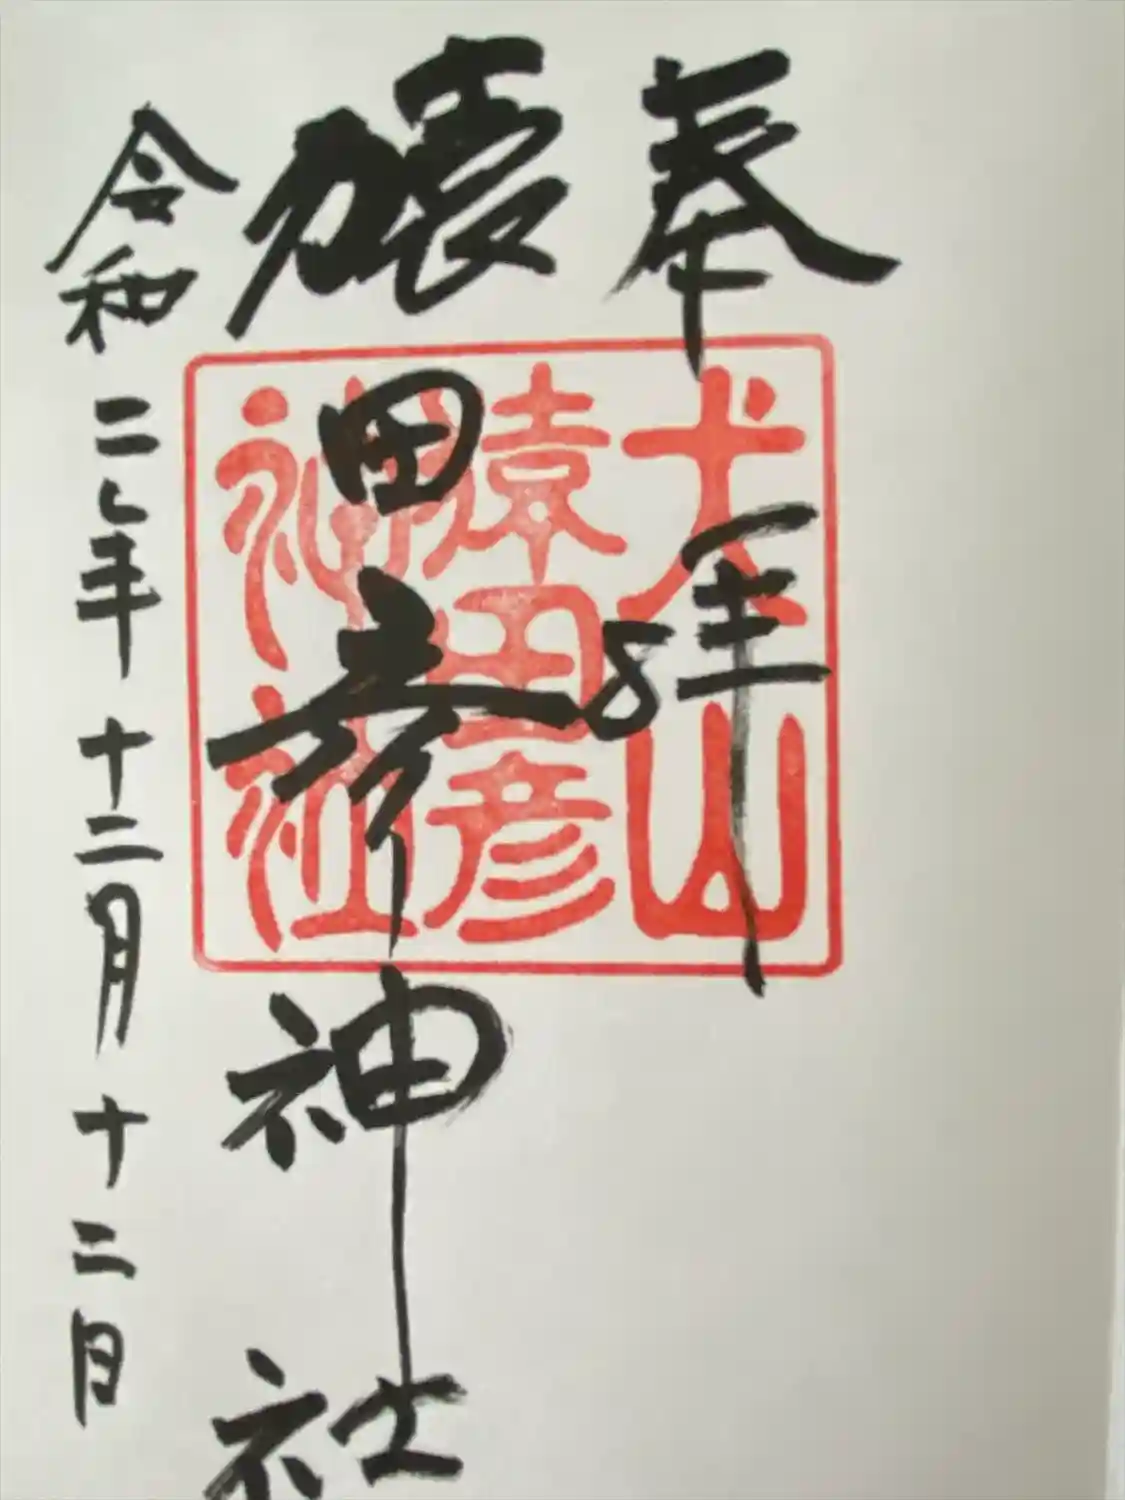 奉拝
犬山
猿田彦
神社
猿田彦神社
令和二年十二月十二日